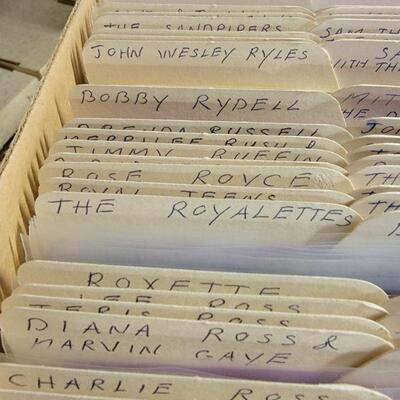 THE SANDPIPERS
SAM TH
JOHN WESLEY RYLES
SA
WITH TH
BOBBY RYDELL
MIT
BRENDA RUSSELL
MERRILEE RUSH &
JIMMY RUFFIN
ROSE ROYCE
TH
ROYAL TEENS
THE ROYALETTES
ROXETTE
LEE ROSS
JERIS ROSS
DIANA ROSS &
MARVIN GAYE
CHARLIE ROSS